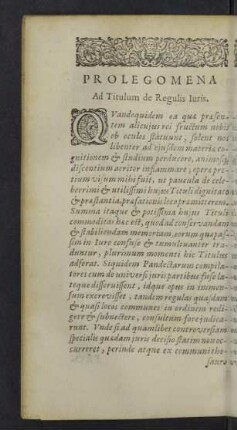 PROLEGOMENA
Ad Titulum de Regulis Iuris.
QVandoquidem ea quæ præsen-
tem alicujus rei fructum nobis
ob oculos statuunt, solent nos
libenter ad ejusdem materiæ co-
gnitionem & studium perducere, animosq́
discentium acriter inflammare, operæ pre-
tium visum mihi fuit, ut pauca de cele-
berrimi & utilissimi hujus Tituli dignitate
& præstantia, præfationis loco præmitterem.
Summa itaque & potissima hujus Tituli
commoditas hæc est, quod ad conservandam
& stabiliendam memoriam, eorum quæ pas-
sim in Iure confuse & tumultuanter tra-
duntur, plurimum momenti hic Titulus
adferat. Siquidem Pandectarum compila-
tores cum de universi juris partibus fuse la-
teque disseruissent, idque opus in immen-
sum excrevisset, tandem regulas quasdam
& quasi locos communes in ordinem redi-
gere & subnectere, consultum fore judica-
runt. Vnde si ad quamlibet controversiam
specialis quædam juris decisio statim non oc-
curreret, perinde atque ex communi the-
sauro